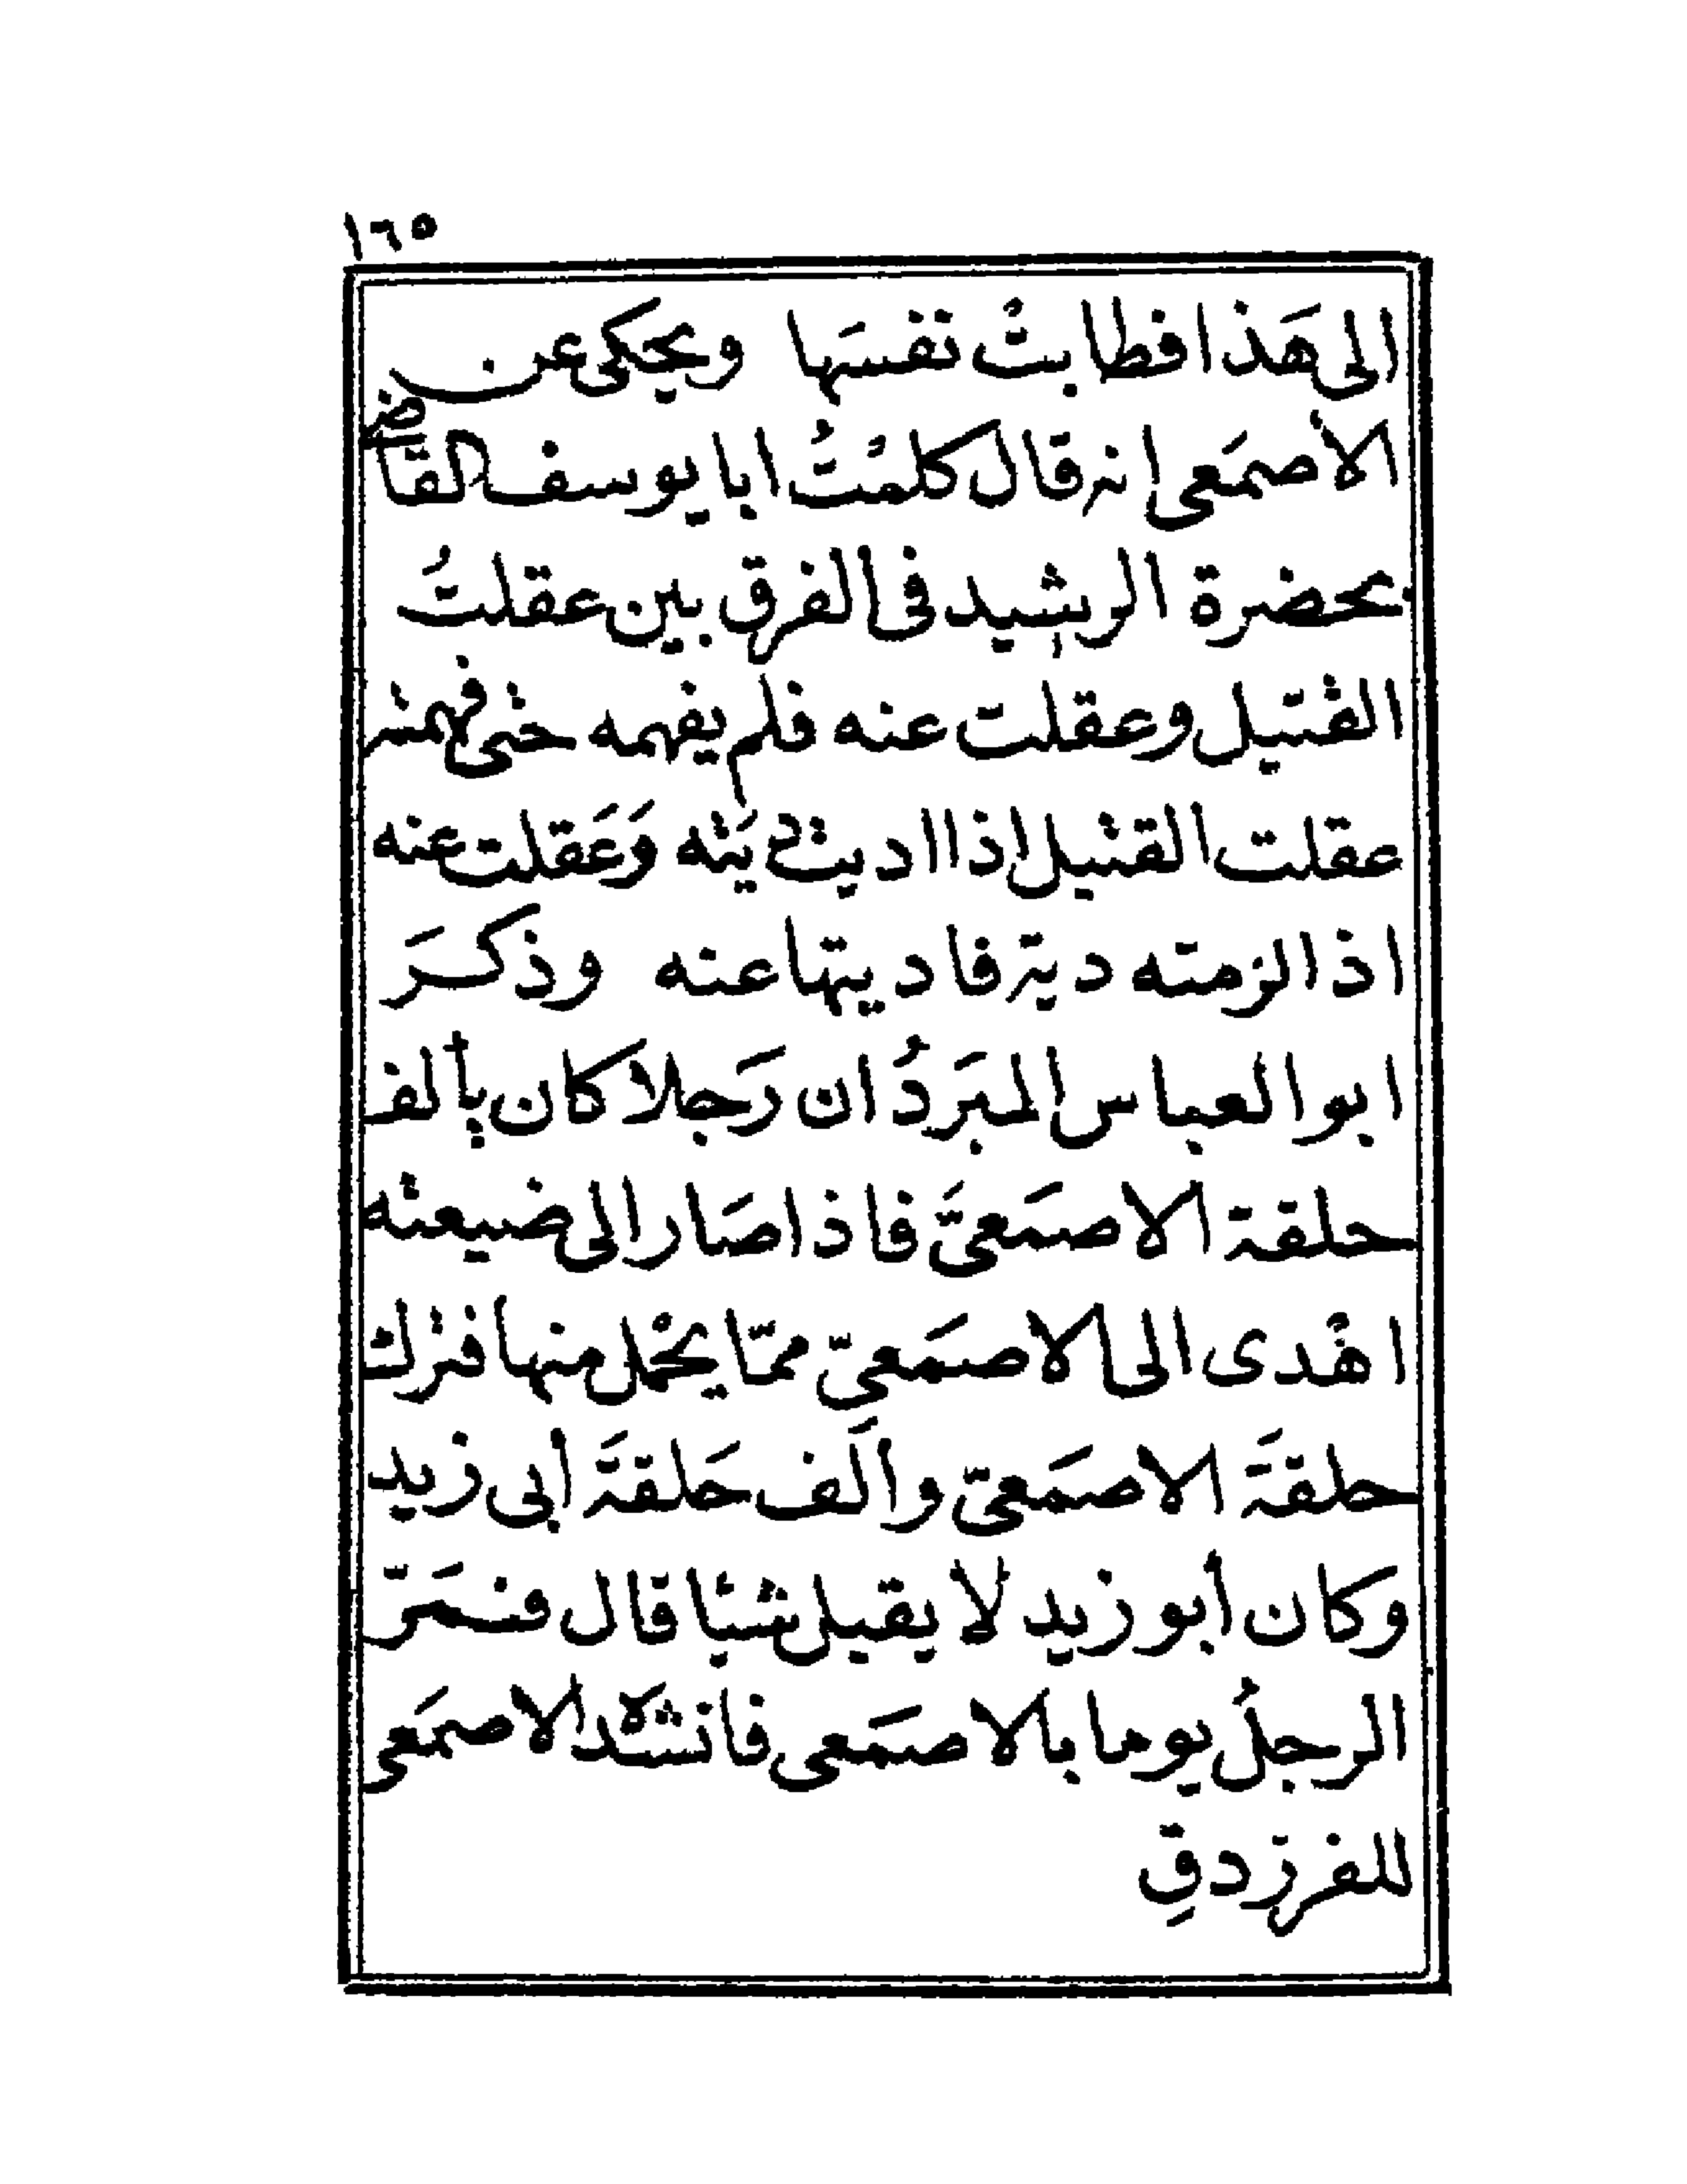 ١٦٥
الى هَذا فطابتْ نفسَها ويحكى عن
الاصمَعى انه قال كلمْتُ ابا يوسف القاضى
بحضرة الرشيد فى الفرق بين عقلتُ
القتيل وعقلت عنه فلم يفهمه حتى فهمته
عقلت القتيل اذا اديت ديَته وَعَقلت عنه
اذا لزمته دية فاديتها عنه وذكرَ
ابو العباس المبَردُ ان رَجلا كان يألف
حلقة الاصمَعىَّ فاذا صَار الى ضيعته
اهْدى الى الاصمَعىّ ممّا يحْمل منها فترك
حلقةَ الاصمَعىّ وألَف حَلقةَ أبى زيد
وكان أبو زيد لا يقبل شيئا قال فمَرّ
الرجلُ يوما بالاصمَعى فانشده الاصمَعى
للفرزدقِ